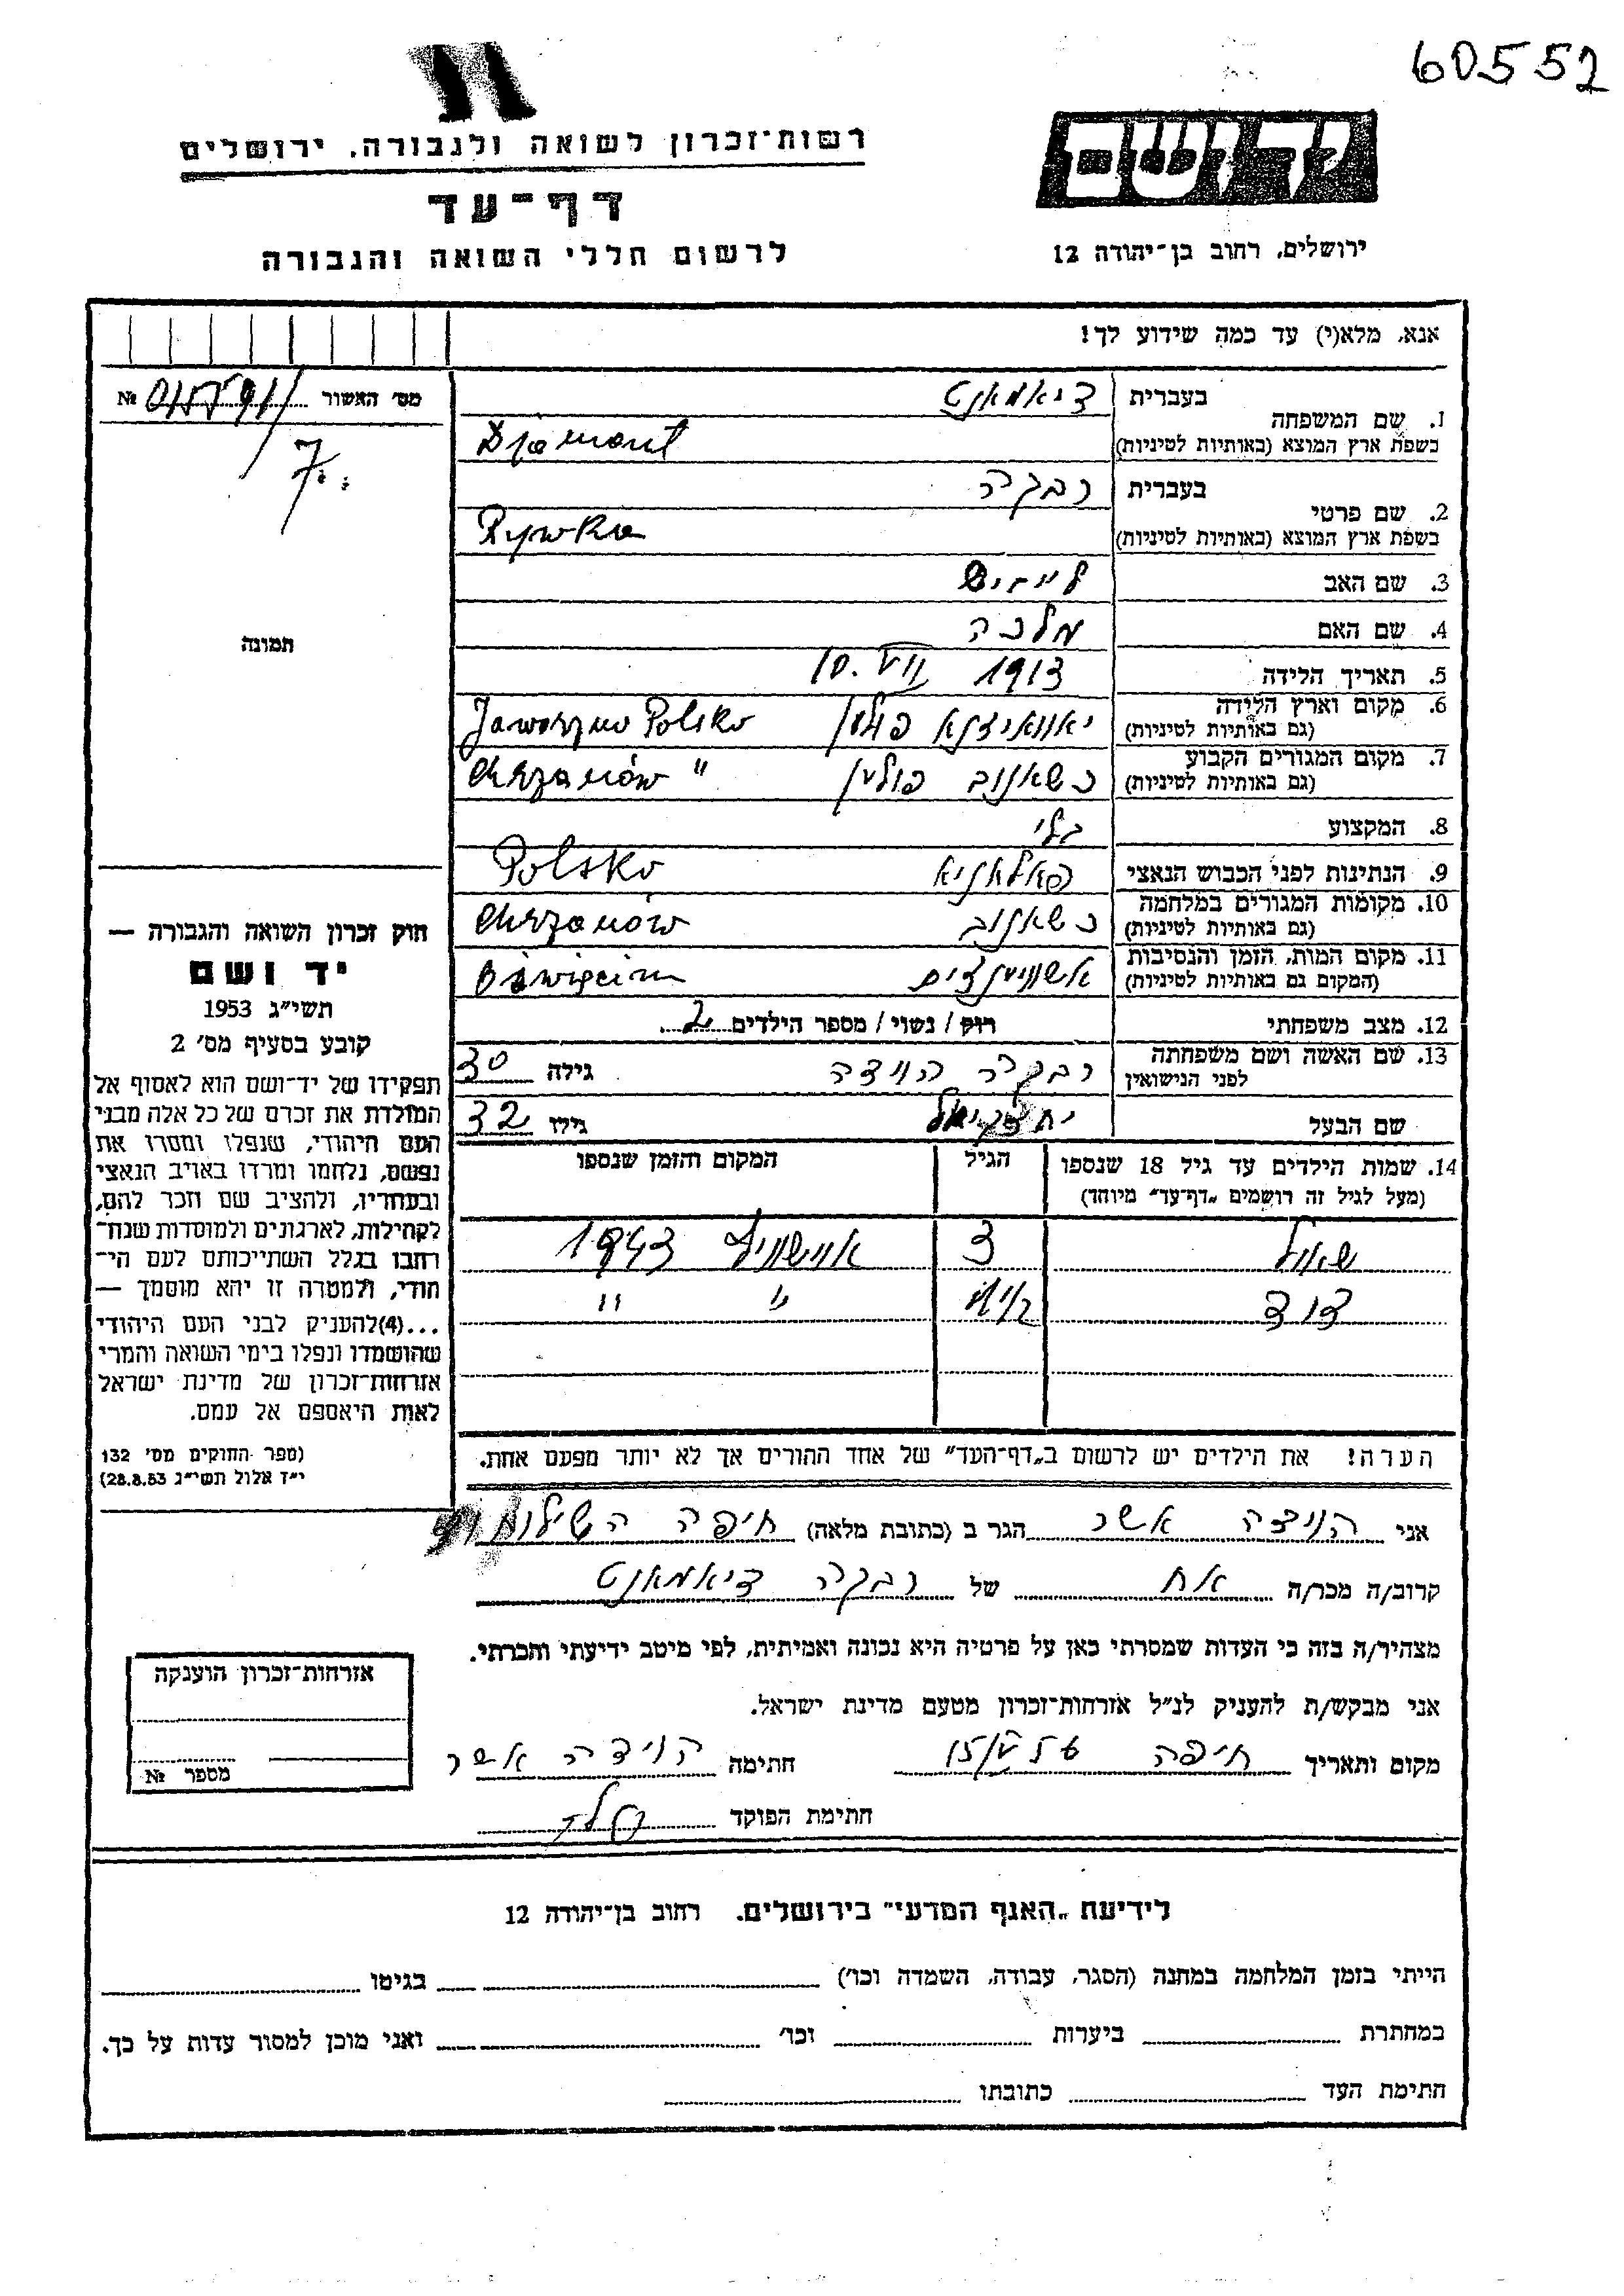 60552
רשות-זכרון לשואה ולגבורה. ירושלים
דף-עד
לרשום חללי השואה והגבורה
יד ושם
ירושלים, רחוב בן-יהודה 12
אנא, מלא(י) עד כמה שידוע לך!
מס׳ האשור №
1. שם המשפחה
בעברית דיאמאנט
בשפת ארץ המוצא (באותיות לטיניות) Djamant
2. שם פרטי
בעברית רבקה
בשפת ארץ המוצא (באותיות לטיניות) Rywka
3. שם האב
4. שם האם מלכה
5. תאריך הלידה 1913 10. VII
6. מקום וארץ הלידה
(גם באותיות לטיניות) פולין Jaworzno Polska
7. מקום המגורים הקבוע
(גם באותיות לטיניות) כשאנוב פולין Chrzanów "
8. המקצוע בלי
9. הנתינות לפני הכבוש הנאצי פאלאניא Polska
10. מקומות המגורים במלחמה
(גם באותיות לטיניות) כשאנוב Chrzanów
11. מקום המות, הזמן והנסיבות
(המקום גם באותיות לטיניות) Oświęcim
12. מצב משפחתי רוק / נשוי / מספר הילדים 2
13. שם האשה ושם משפחתה
לפני הנישואין רבקה הוידה גילה 30
שם הבעל יחזקיאל גילו 32
14. שמות הילדים עד גיל 18 שנספו הגיל המקום והזמן שנספו
(מעל לגיל זה רושמים „דף-עד״ מיוחד)
שאול 3 1943
דוד " "
הערה! את הילדים יש לרשום ב„דף-העד״ של אחד ההורים אך לא יותר מפעם אחת.
תמונה
חוק זכרון השואה והגבורה —
יד ושם
תשי״ג 1953
קובע בסעיף מס׳ 2
תפקידו של יד-ושם הוא לאסוף אל
המולדת את זכרם של כל אלה מבני
העם היהודי, שנפלו ומסרו את
נפשם, נלחמו ומרדו באויב הנאצי
ובעוזריו, ולהציב שם וזכר להם,
לקהילות, לארגונים ולמוסדות שנח-
רבו בגלל השתייכותם לעם הי-
הודי, ולמטרה זו יהא מוסמך —
...(4) להעניק לבני העם היהודי
שהושמדו ונפלו בימי השואה והמרי
אזרחות-זכרון של מדינת ישראל
לאות היאספם אל עמם.
(ספר החוקים מס׳ 132
י״ד אלול תשי״ג 28.8.53)
אני הוידה אשר הגר ב (כתובת מלאה) חיפה
קרוב/ה מכר/ה אח של רבקה דיאמאנט
מצהיר/ה בזה כי העדות שמסרתי כאן על פרטיה היא נכונה ואמיתית, לפי מיטב ידיעתי והכרתי.
אני מבקש/ת להעניק לנ״ל אזרחות-זכרון מטעם מדינת ישראל.
מקום ותאריך חיפה חתימה הוידה אשר
חתימת הפוקד
אזרחות-זכרון הוענקה
מספר №
לידיעת „האגף המדעי״ בירושלים. רחוב בן-יהודה 12
הייתי בזמן המלחמה במחנה (הסגר, עבודה, השמדה וכו׳) בגיטו
במחתרת ביערות וכו׳ ואני מוכן למסור עדות על כך.
חתימת העד כתובתו